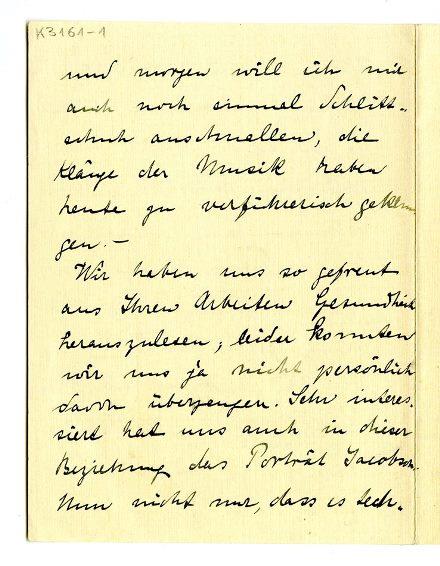 K3161-1
und morgen will ich mir
auch noch einmal Schlitt-
schuh anschnallen, die
Klänge der Musik haben
heute zu verführerisch geklun
gen. –
Wir haben uns so gefreut
aus Ihren Arbeiten Gesundheit
herauszulesen, leider konnten
wir uns ja nicht persönlich
davon überzeugen. Sehr interes-
siert hat uns auch in dieser
Beziehung das Porträt Jacobson.
Nun nicht nur, dass es tech-